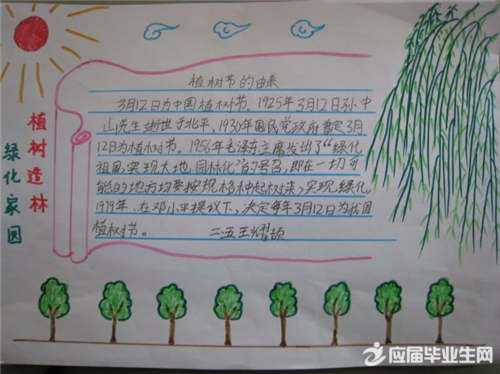 植树造林
绿化家园
植树节的由来
3月12日为中国植树节。1925年3月12日孙中
山先生逝世于北平,1930年国民党政府暂定3月
12日为植树节。1956年毛泽东主席发出了“绿化
祖国,实现大地园林化”的号召,即在一切可
能的地方均要按规格种起树来,实现绿化。
1979年,在邓小平提议下,决定每年3月12日为我国
植树节。 二五王
应届毕业生网